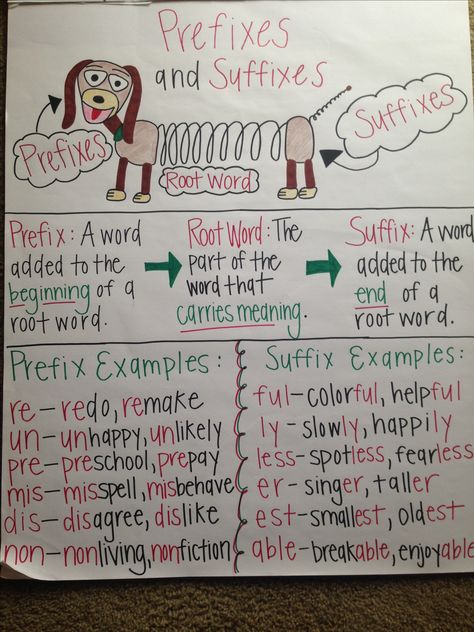 Prefixes
and Suffixes
Prefixes
Root Word
Suffixes
Prefix: A word
added to the
beginning of a
root word.
Root Word: The
part of the
word that
carries meaning.
Suffix: A word
added to the
end of a
root word.
Prefix Examples:
re- redo, remake
un- unhappy, unlikely
pre- preschool, prepay
mis- misspell, misbehave
dis- disagree, dislike
non- nonliving, nonfiction
Suffix Examples:
ful- colorful, helpful
ly- slowly, happily
less- spotless, fearless
er- singer, taller
est- smallest, oldest
able- breakable, enjoyable